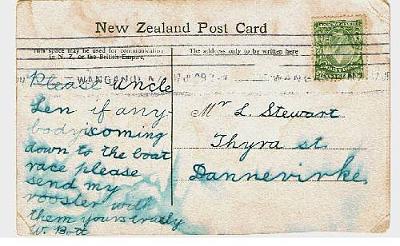 New Zealand Post Card
This space may be used for communication
in N.Z. or the British Empire.
The address only to be written here
WANGANUI
Please Uncle
Len if any-
body is coming
down to the boat
race please
send my
rooster with
them yours truely
W. Bott
Mr L. Stewart
Thyra st.
Dannevirke.